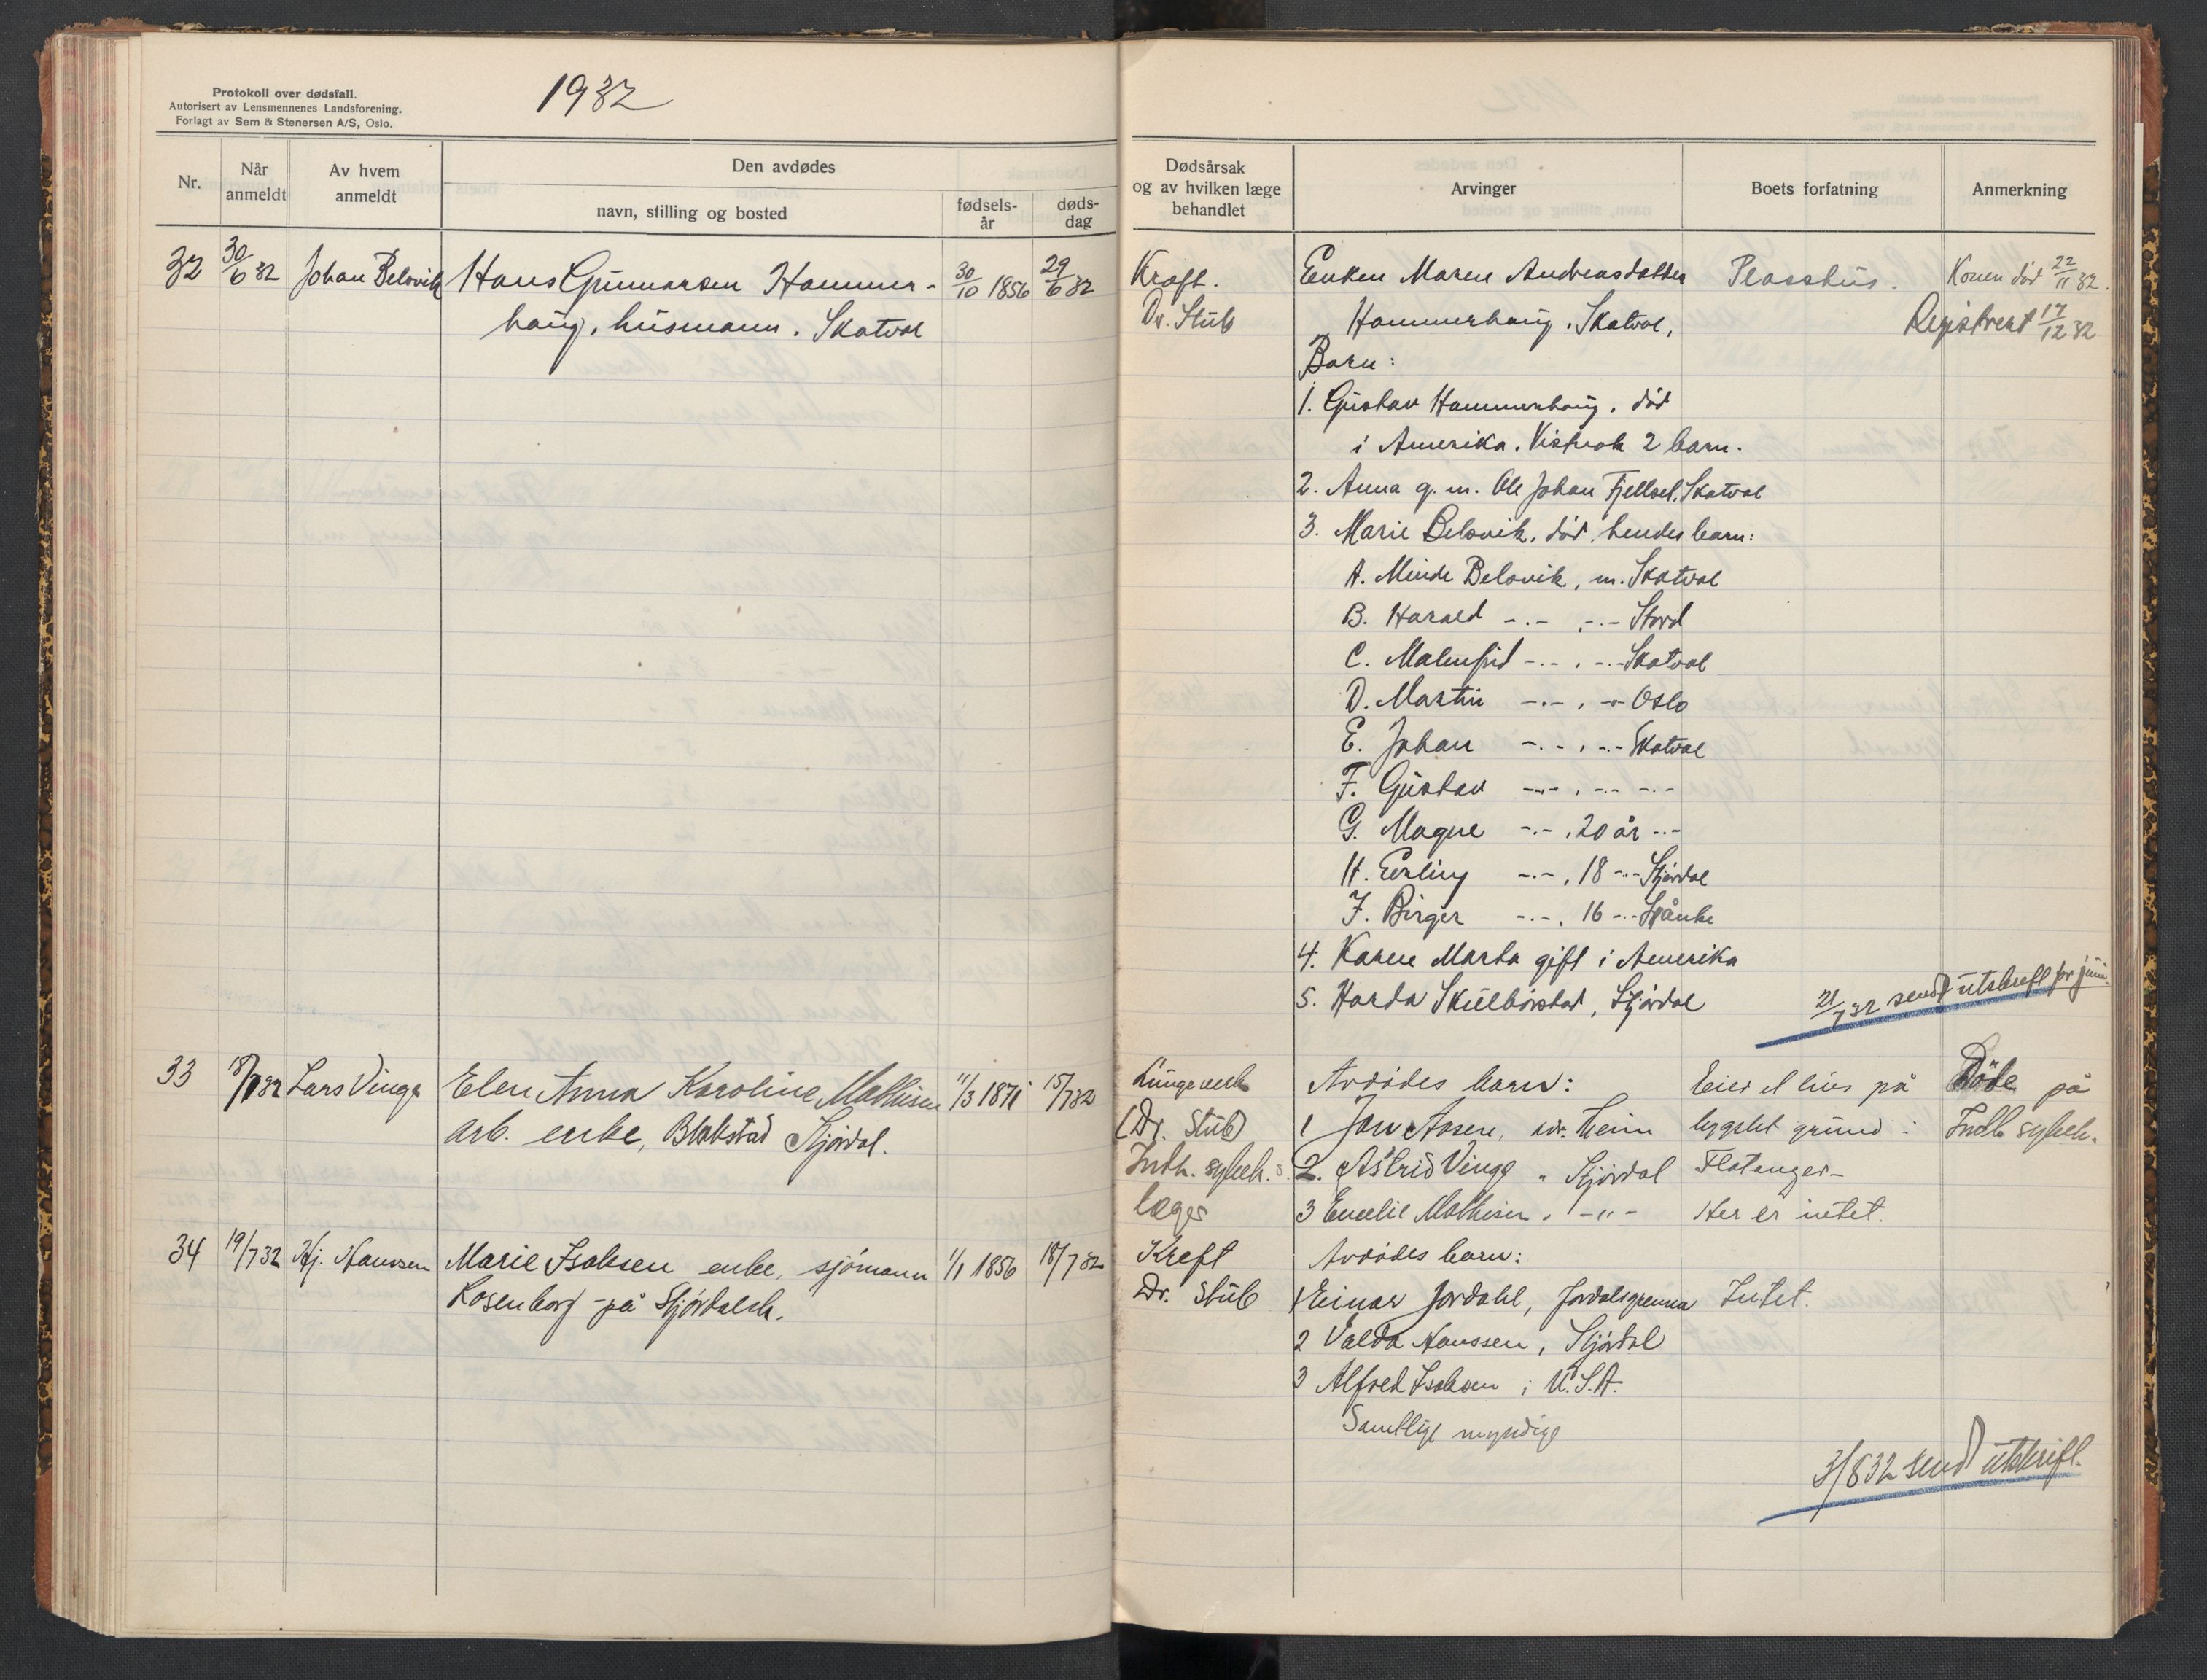 Protokoll over dødsfall.
Autorisert av Lensmennenes Landsforening.
Forlagt av Sem & Stenersen A/S, Oslo.
1932
Nr.
Når anmeldt
Av hvem anmeldt
Den avdødes
navn, stilling og bosted
fødsels-år
døds-dag
32 30/6 32 Johan Belsvik Hans Gunnarsen Hammer- 30/10 1856 29/6 32
haug, husmann, Skatval
33 18/7 32 Lars Vinge Elen Anna Karoline Mathisen 11/3 1871 15/7 32
arb. enke, Blakstad Stjørdal.
34 19/7 32 Hj. Hanssen Marie Isaksen enke, sjømann 1/1 1856 18/7 32
Rosenborg på Stjørdalsh.
Dødsårsak
og av hvilken læge
behandlet
Arvinger
Boets forfatning
Anmerkning
Kræft. Enken Maren Andreasdatter Plasshus. Konen død 22/11 32.
Dr. Stub Hammerhaug, Skatval, Registrert 17/12 32
Barn:
1. Gustav Hammerhaug, død
i Amerika. Vistnok 2 barn.
2. Anna g. m. Ole Johan Fjellsel, Skatval
3. Marie Belsvik, død, hendes barn:
A. Minde Belsvik, m. Skatval
B. Harald -.- , -.- Stord
C. Malmfrid -.- , -.- Skatval
D. Martin -.- , -.- Oslo
E. Johan -.- , -.- Skatval
F. Gustav -.- , -.- -.-
G. Magne -.- , 20 år -.-
H. Erling -.- , 18 -.- Stjørdal
J. Birger -.- , 16 -.- Hånke
4. Karen Marta gift i Amerika
5. Harda Skulbørstad, Stjørdal
21/7 32 sendt utskrift for juni.
Lungeverk Avdødes barn: Eier et hus på Døde på
(Dr. Stub) 1 Jon Aasen, adr. Heim bygslet grund i Indh. sykeh.
Indh. sykeh.s 2. Astrid Vinge " Stjørdal Flatanger -
læger 3 Emelie Mathisen, -"- Her er intet.
Kreft Avdødes barn:
Dr. Stub 1 Einar Jordahl, Jordalsgrenna Intet.
2 Valda Hanssen, Stjørdal
3 Alfred Isaksen i U.S.A.
Samtlige myndige
3/8 32 sendt utskrift.